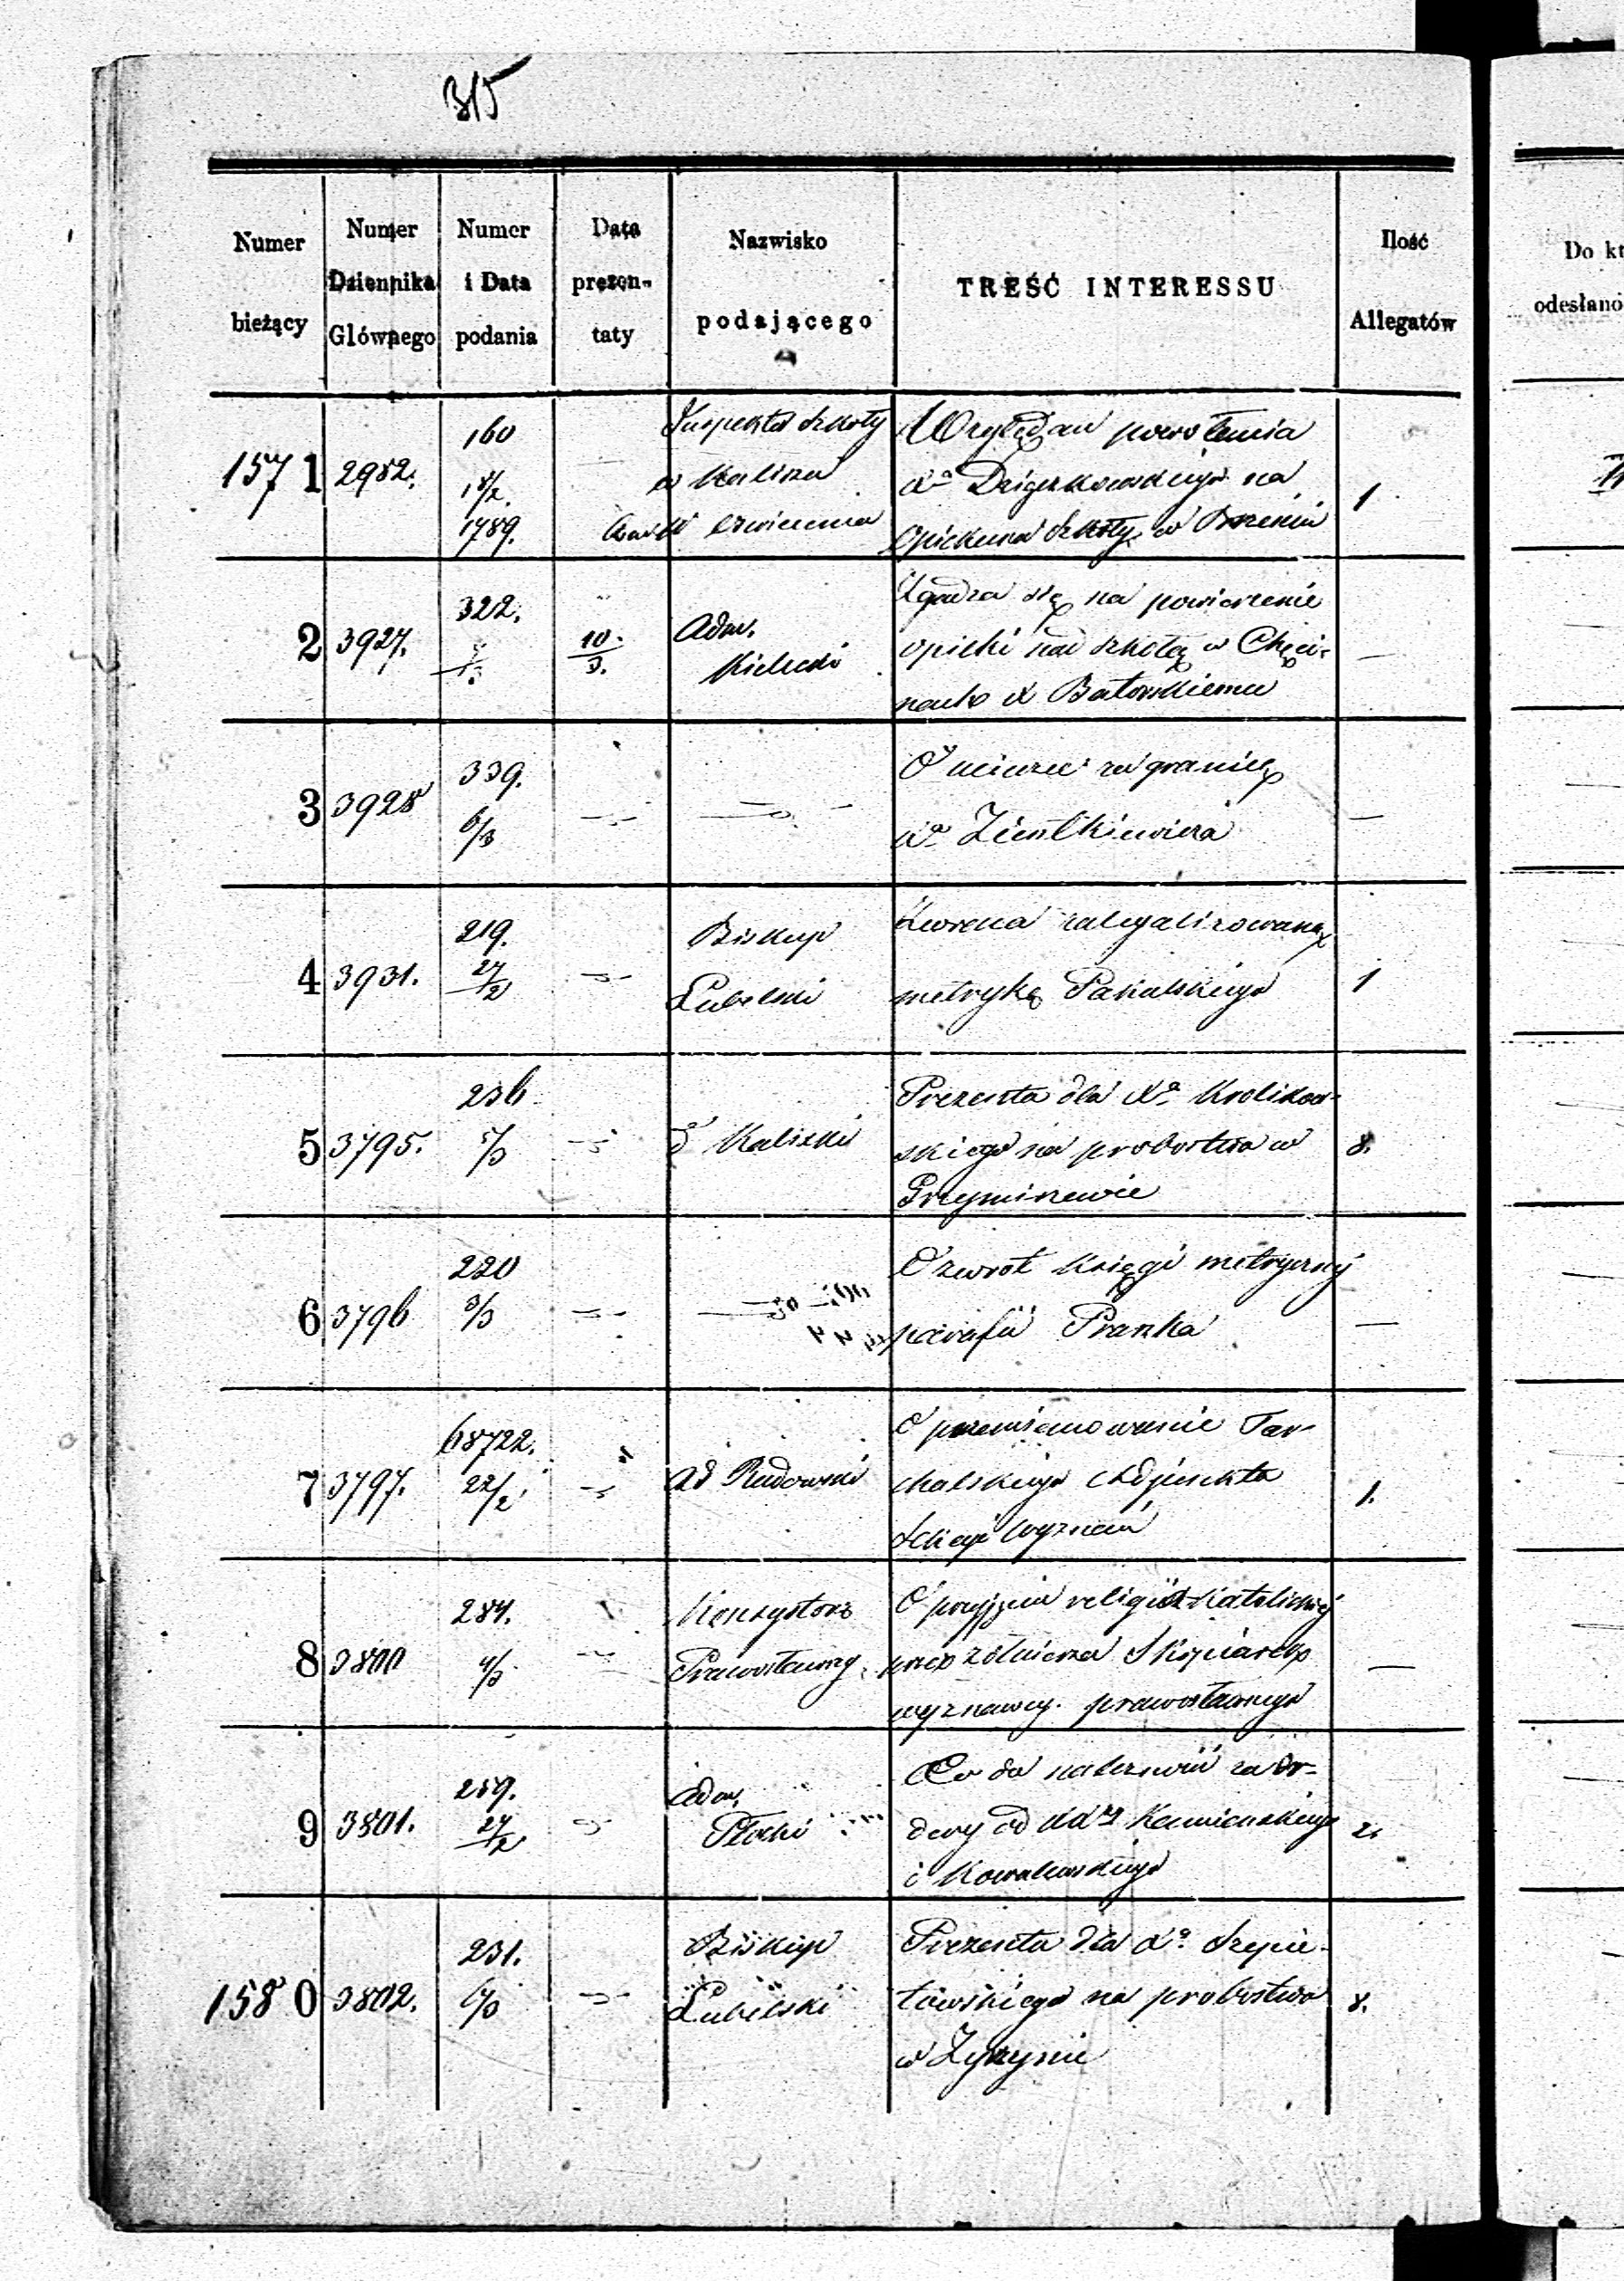 315
Numer bieżący
Numer Dziennika Głównego
Numer i Data podania
Data prezentaty
Nazwisko podającego
TREŚĆ INTERESSU
Ilość Allegatów
Do kt
odesłano
1571
2982.
160
18/2.
1789.
Inspektor Szkoły
w Kaliszu
Względem powołania
Xa
na
Opiekuna Szkoły w
1
2
3927.
322.
10.
3.
Adm.
Kielecki
Zgadza się na powierzenie
opieki nad szkołą w Chęci-
nach X Batorskiemu
—
3
3928
339.
6/3
O ucieczce za granicę
Xa Zientkiewicza
—
4
3931.
219.
27/2
Biskup
Lubelski
Zwraca zalegalizowaną
metrykę Pakalskiego
1
5
3795.
236
5/3
do Kaliski
Prezenta dla Xa Krolikow-
skiego na probostwo w
8.
6
3796
220
3/3
O zwrot księgi metrycznej
parafii
—
7
3797.
68722.
22/2
Ad Radomski
O przemianowanie Tar-
chalskiego Adjunkta
Sekcyi Wyznań
1.
8
3800
284.
4/3
Konsystorz
Prawosławny
O przyjęciu religii Katolickiej
przez żołnierza
wyznawcy prawosławnego
—
9
3801.
259.
27/2
Adm.
Płocki
Co do należności za or-
dery od Xdzy Kamieńskiego
i Kowalewskiego
2.
1580
3802.
231.
6/3
Biskup
Lubelski
Prezenta dla Xa Szepie-
towskiego na probostwo
w Żyrzynie
8.